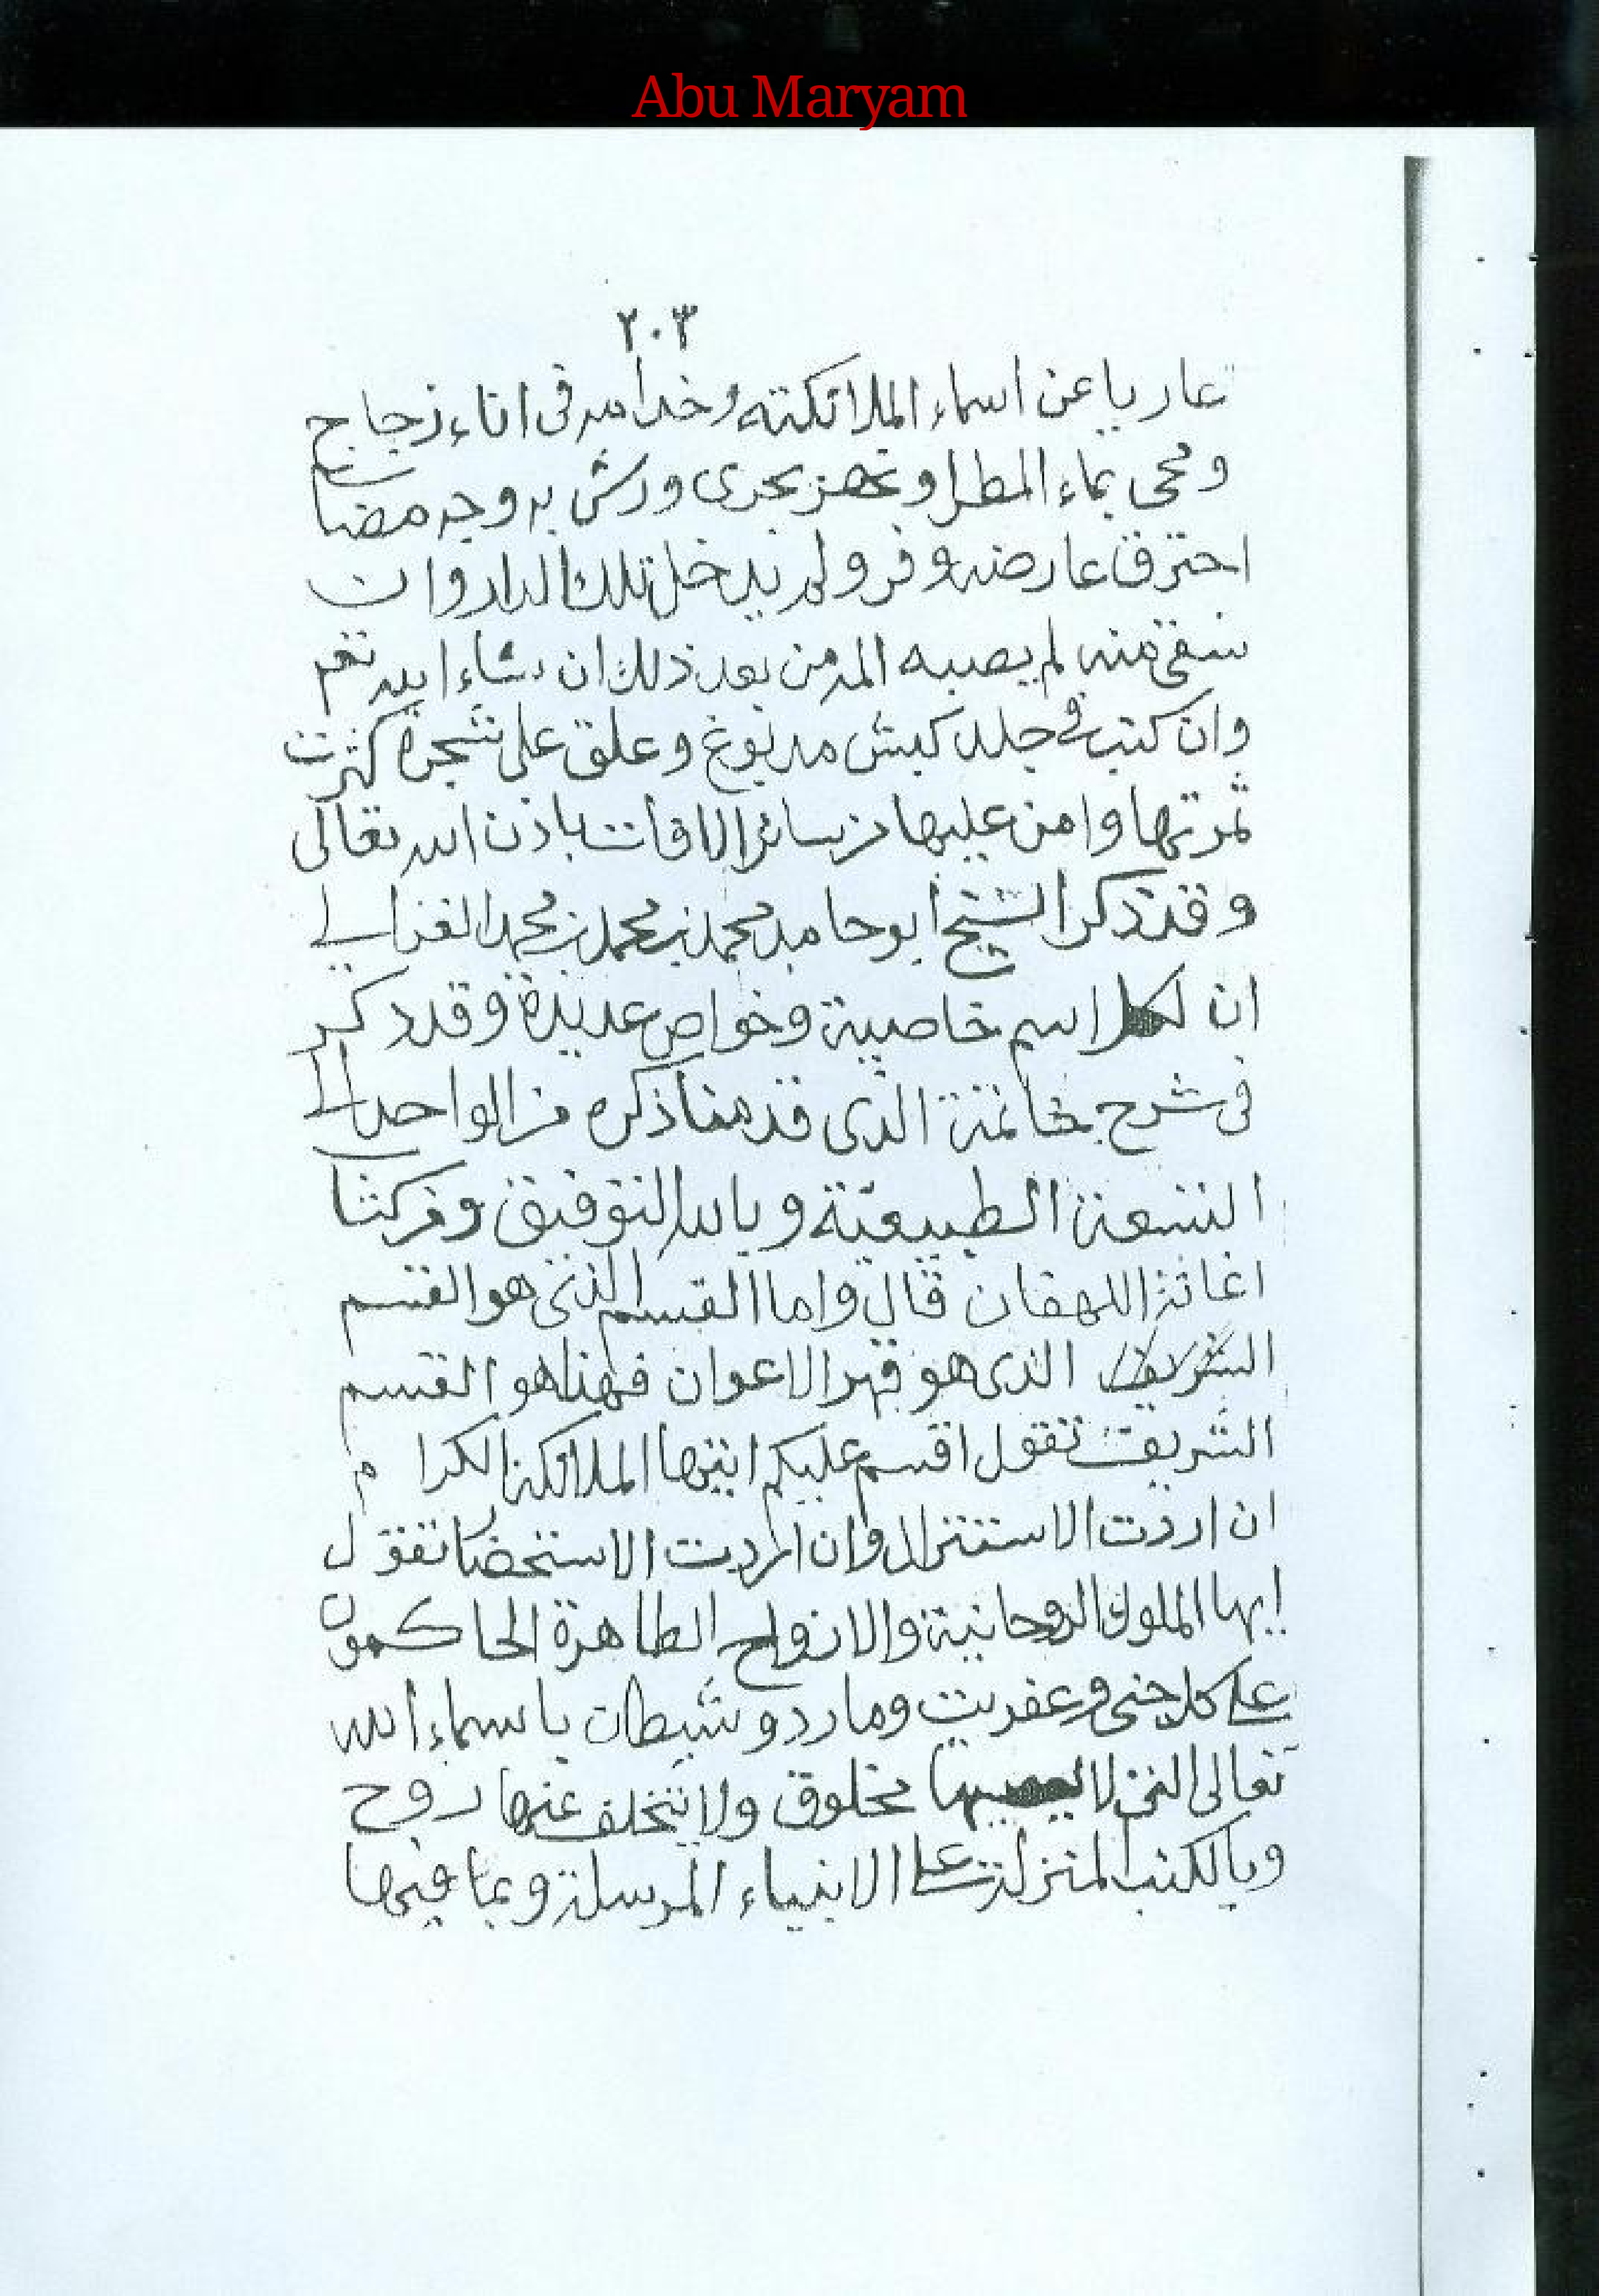 Abu Maryam
٢٠٣
عاريا عن اسماء الملائكته وخدامه فى اناء زجاج
ومحى بماء المطر او نهر يجرى ورش به وجه مصاب
احترق عارضه وفر ولم يدخل تلك الدار وان
سقى منه لم يصبه المرض بعد ذلك ان شاء الله تعم
وان كتب فى جلد كبش مدبوغ وعلق على شجرة كثرت
ثمرتها وامن عليها من سائر الافات باذن الله تعالى
وقد ذكر الشيخ ابو حامد محمد بن محمد بن محمد الغزالى
ان لكل اسم خاصية وخواص عديدة وقد ذكر
فى شرح خاتمة الذى قدمنا ذكره من الواحد الى
التسعة الطبيعية وبالله التوفيق ومن كتاب
اغاثة اللهفان قال واما القسم الذى هو القسم
الشريف الذى هو قهر الاعوان فهذا هو القسم
الشريف تقول اقسم عليكم ايتها الملائكة الكرام
ان اردت الاستنزال وان اردت الاستحضار تقول
ايها الملوك الروحانية والارواح الطاهرة الحاكمون
على كل جنى وعفريت ومارد وشيطان باسماء الله
تعالى التى لا مخلوق ولا يتخلف عنها روح
وبالكتب المنزلة على الانبياء المرسلة وبما فيها